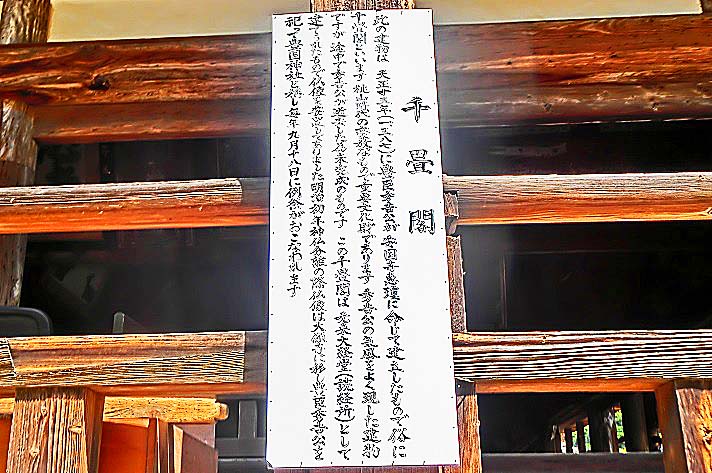 千畳閣
此の建物は 天正十五年(一五八七)に豊臣秀吉公が安国寺恵瓊に命じて建立したもので俗に
千畳閣といいます 桃山時代の豪放なもので重要文化財であります 秀吉公の気風をよく現した建物
ですが 途中で秀吉公が薨去した為未完成のものです この千畳閣は 元来大経堂(読経所)として
建てられたもので仏像を安置してありました 明治初年神仏分離の際仏像は大願寺に移し豊臣秀吉公を
祀って豊国神社と称し毎年九月十八日に例祭がおこなわれます